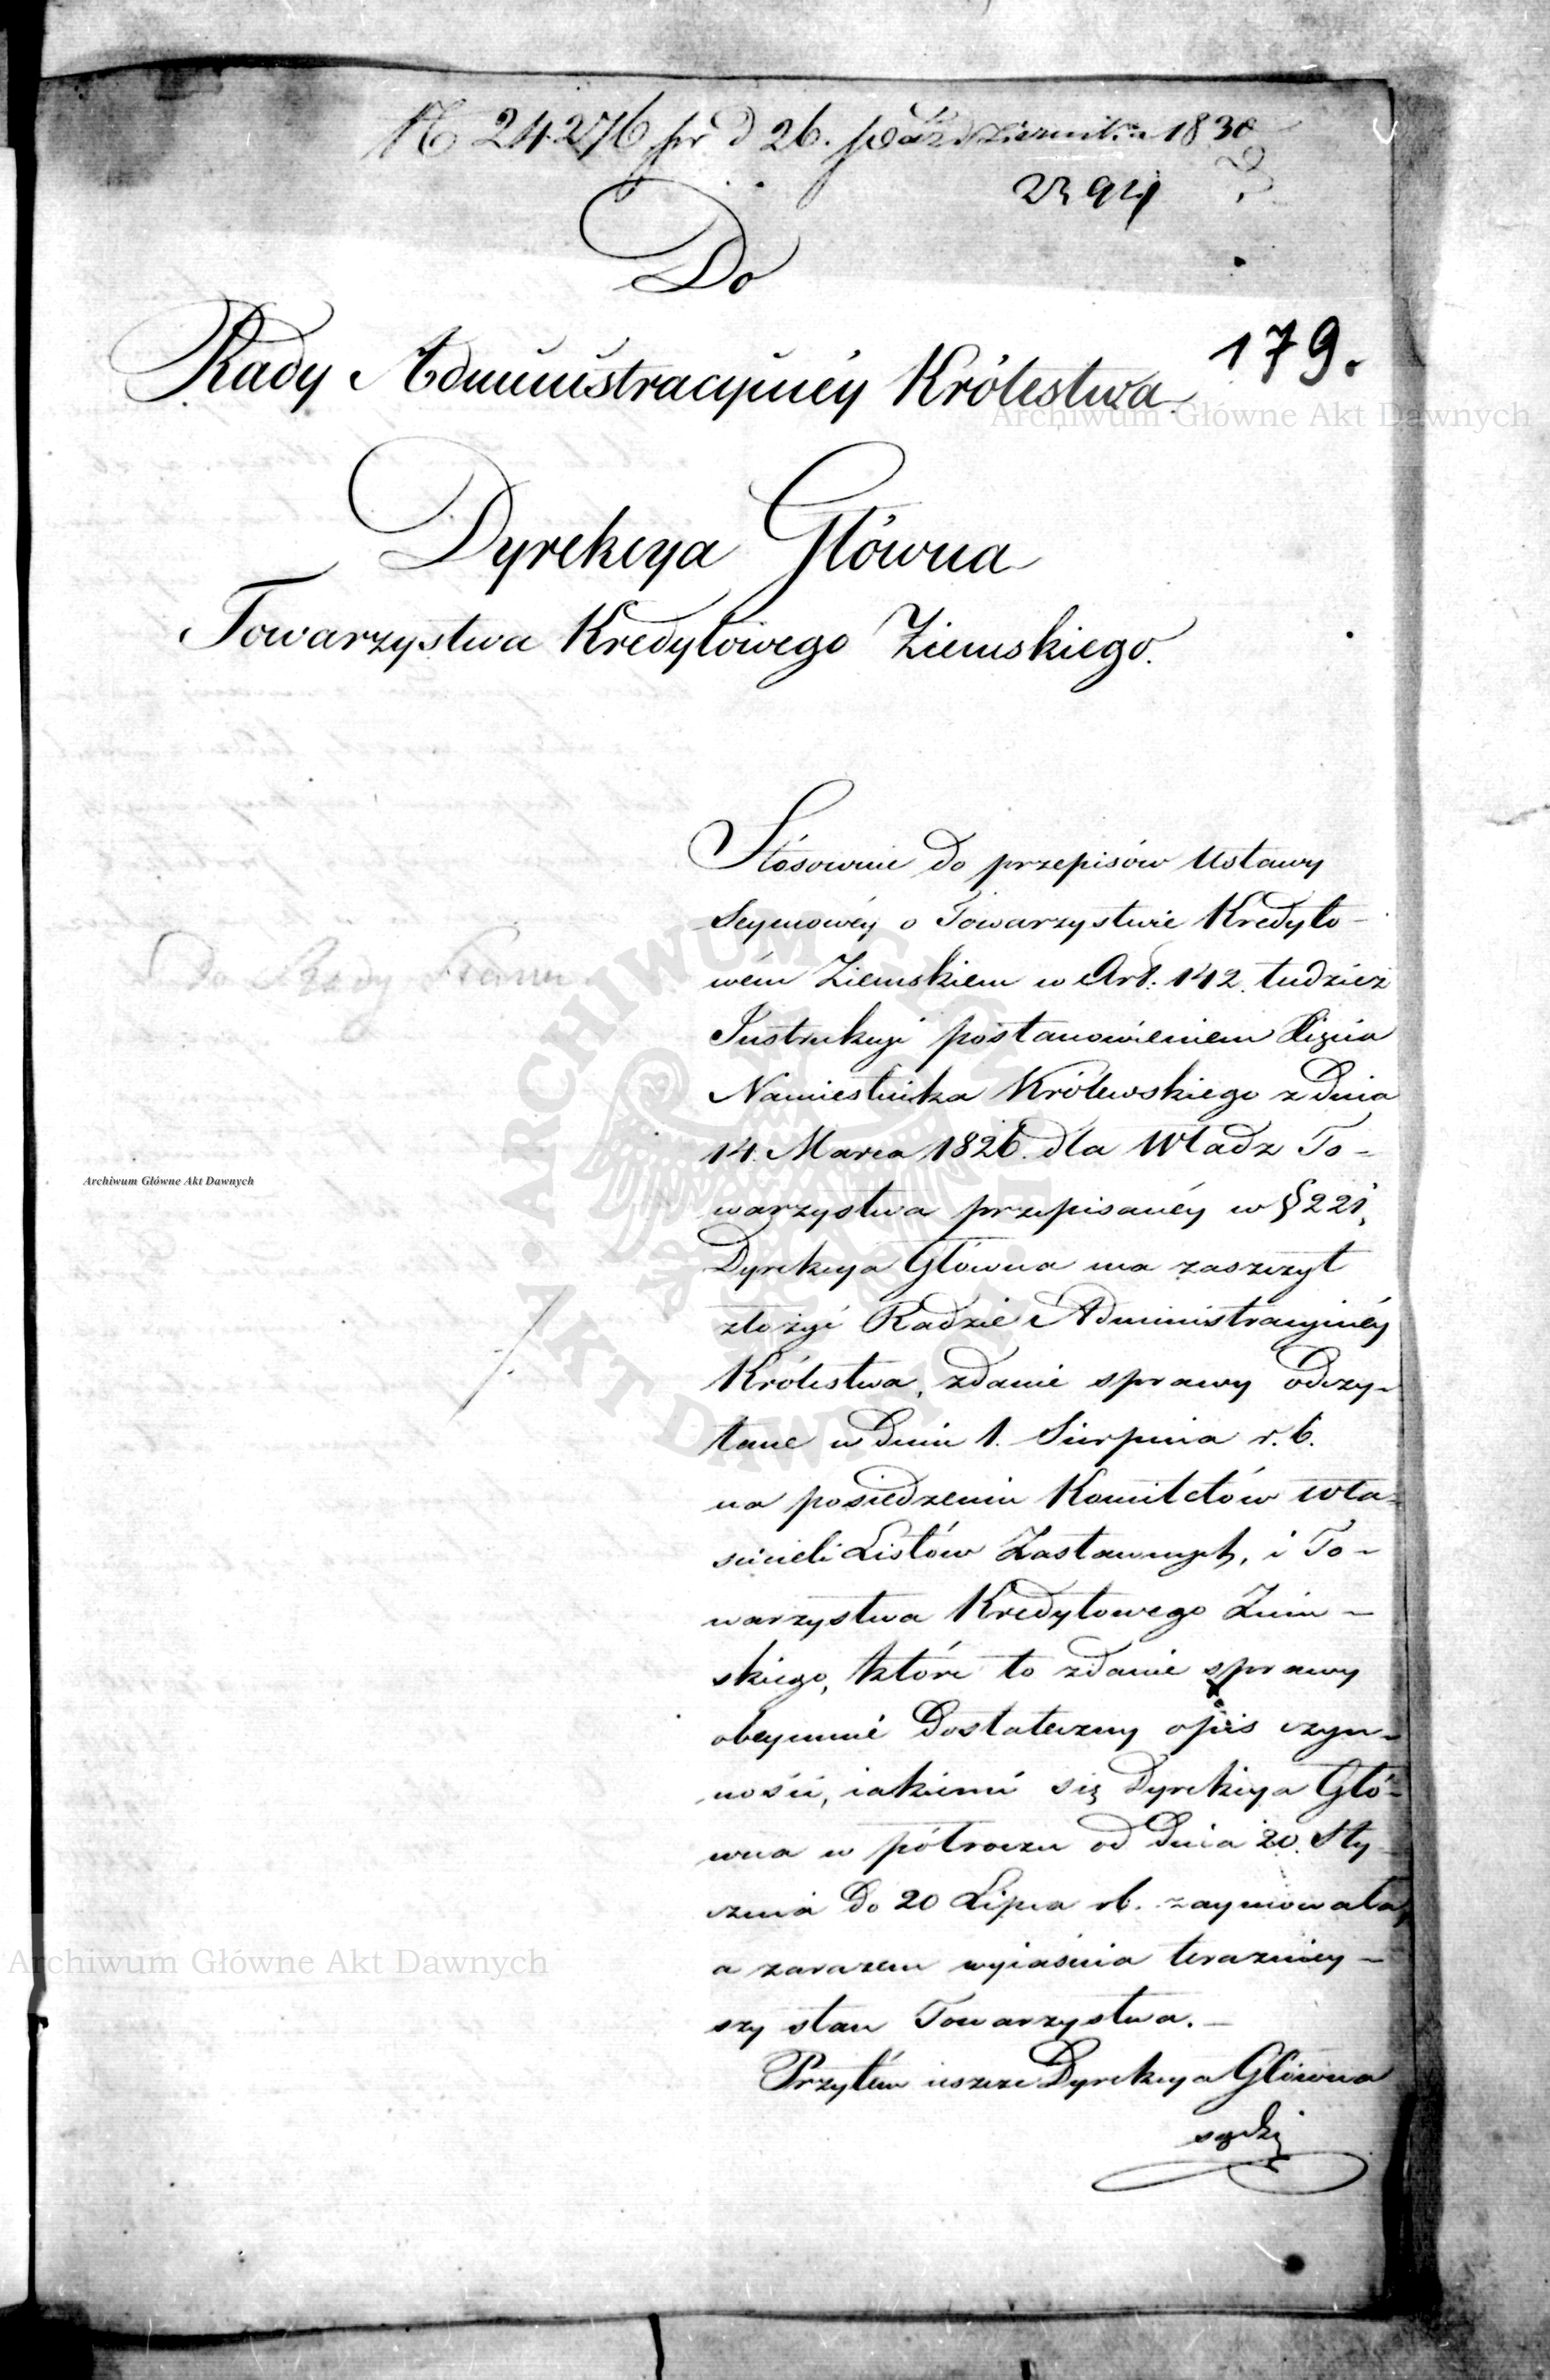 N 24276 pr d 26. października 1830
2394
Do
179.
Rady Administracyinéy Królestwa
Archiwum Główne Akt Dawnych
Dyrekcya Główna
Towarzystwa Kredytowego Ziemskiego.
Stósownie do przepisów Ustawy
Seymowéy o Towarzystwie Kredyto-
wém Ziemskiem w Art. 142. tudzież
Do Rady Stanu
Instrukcyi postanowieniem Xięcia
Namiestnika Królewskiego z dnia
14. Marca 1826. dla Władz To-
Archiwum Główne Akt Dawnych
warzystwa przepisanéy w § 221,
Dyrekcya Główna ma zaszczyt
złożyć Radzie Administracyinéy
Królestwa, zdanie sprawy odczy-
tane w dniu 1. Sierpnia r. b.
na posiedzeniu Komitetów Wła-
ścicieli Listów Zastawnych, i To-
warzystwa Kredytowego Ziem-
skiego, które to zdanie sprawy
obeymuie dostateczny opis czyn-
ności, iakiemi się Dyrekcya Głó-
wna w półroczu od dnia 20. Sty
cznia do 20 Lipca rb. zaymowała,
a zarazem wyiaśnia teraźniey-
Archiwum Główne Akt Dawnych
szy stan Towarzystwa.-
Przytém ieszcze Dyrekcya Główna
sądzi
ARCHIWUM GŁÓWNE AKT DAWNYCH